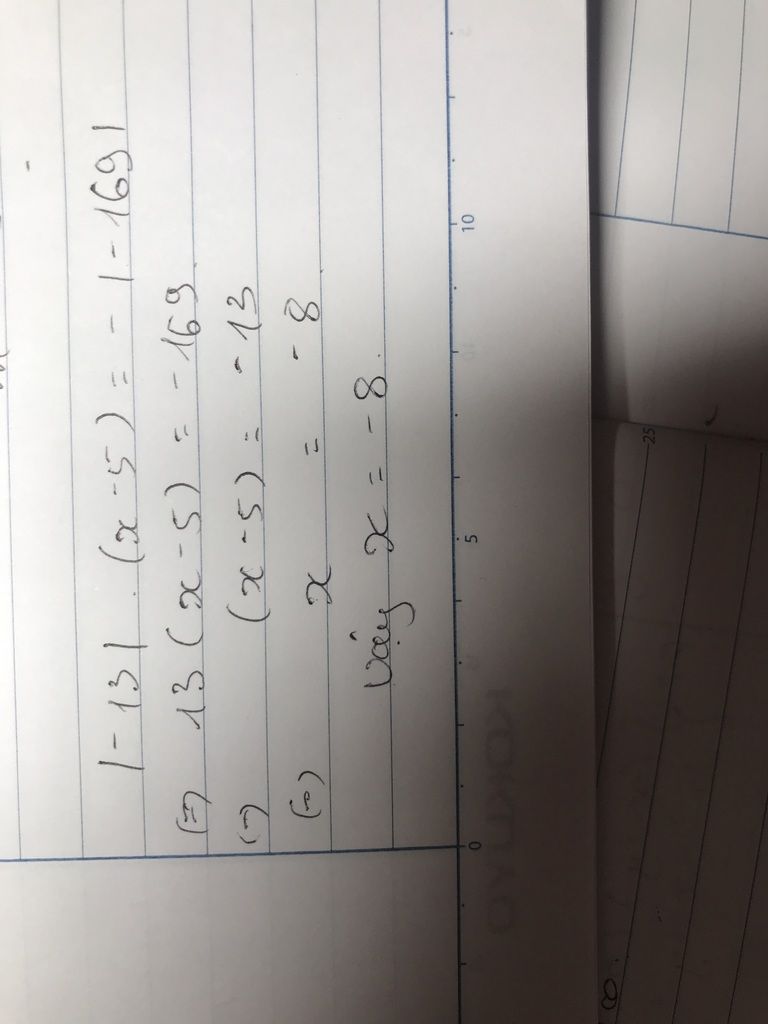 |-13| . (x - 5) = - |-169|
(=) 13 (x - 5) = - 169
(=) (x - 5) = - 13
(=) x = - 8
Vậy x = - 8.
0 5 10
KOKUYO
25
8